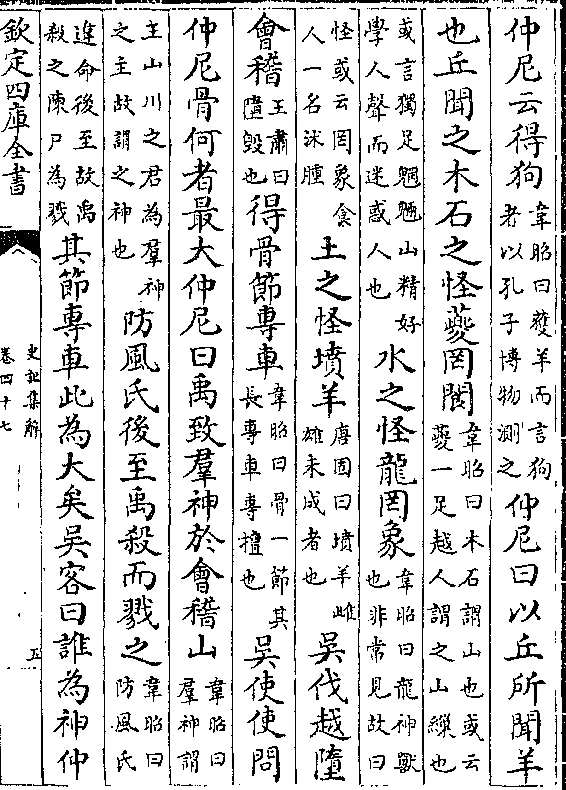 仲尼云得狗韋昭曰獲羊而言狗者以孔子博物測之仲尼曰以丘所聞羊
也丘聞之木石之怪夔罔閬韋昭曰木石謂山也或云夔一足越人謂之山繅也
或言獨足魍魎山精好學人聲而迷惑人也水之怪龍罔象韋昭曰龍神獸也非常見故曰
怪或云罔象食人一名沐腫土之怪墳羊唐固曰墳羊雌雄未成者也吳伐越墮
會稽王肅曰墮毀也得骨節專車韋昭曰骨一節其長專車專擅也吳使使問
仲尼骨何者最大仲尼曰禹致羣神於會稽山韋昭曰羣神謂
主山川之君為羣神之主故謂之神也防風氏後至禹殺而戮之韋昭曰防風氏
違命後至故禹殺之陳尸為戮其節專車此為大矣吳客曰誰為神仲
欽定四庫全書
史記集解
卷四十七
五